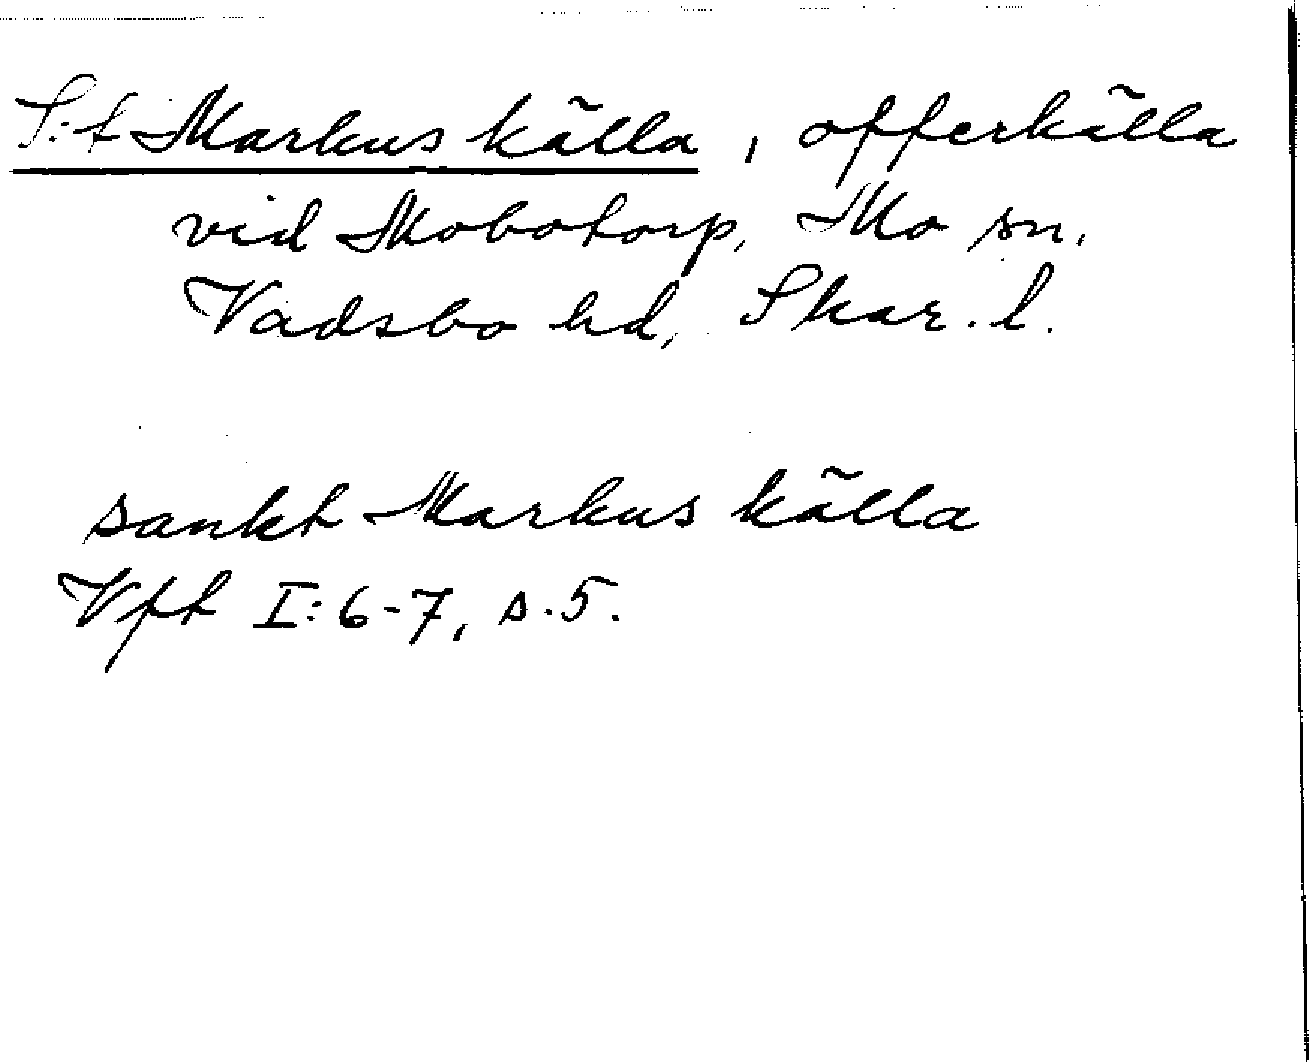 S:t Markus källa, offerkälla
vid Mobotorp, Mo sn,
Vadsbo hd, Skar. l.
sankt Markus källa
Vft I:6-7, s.5.